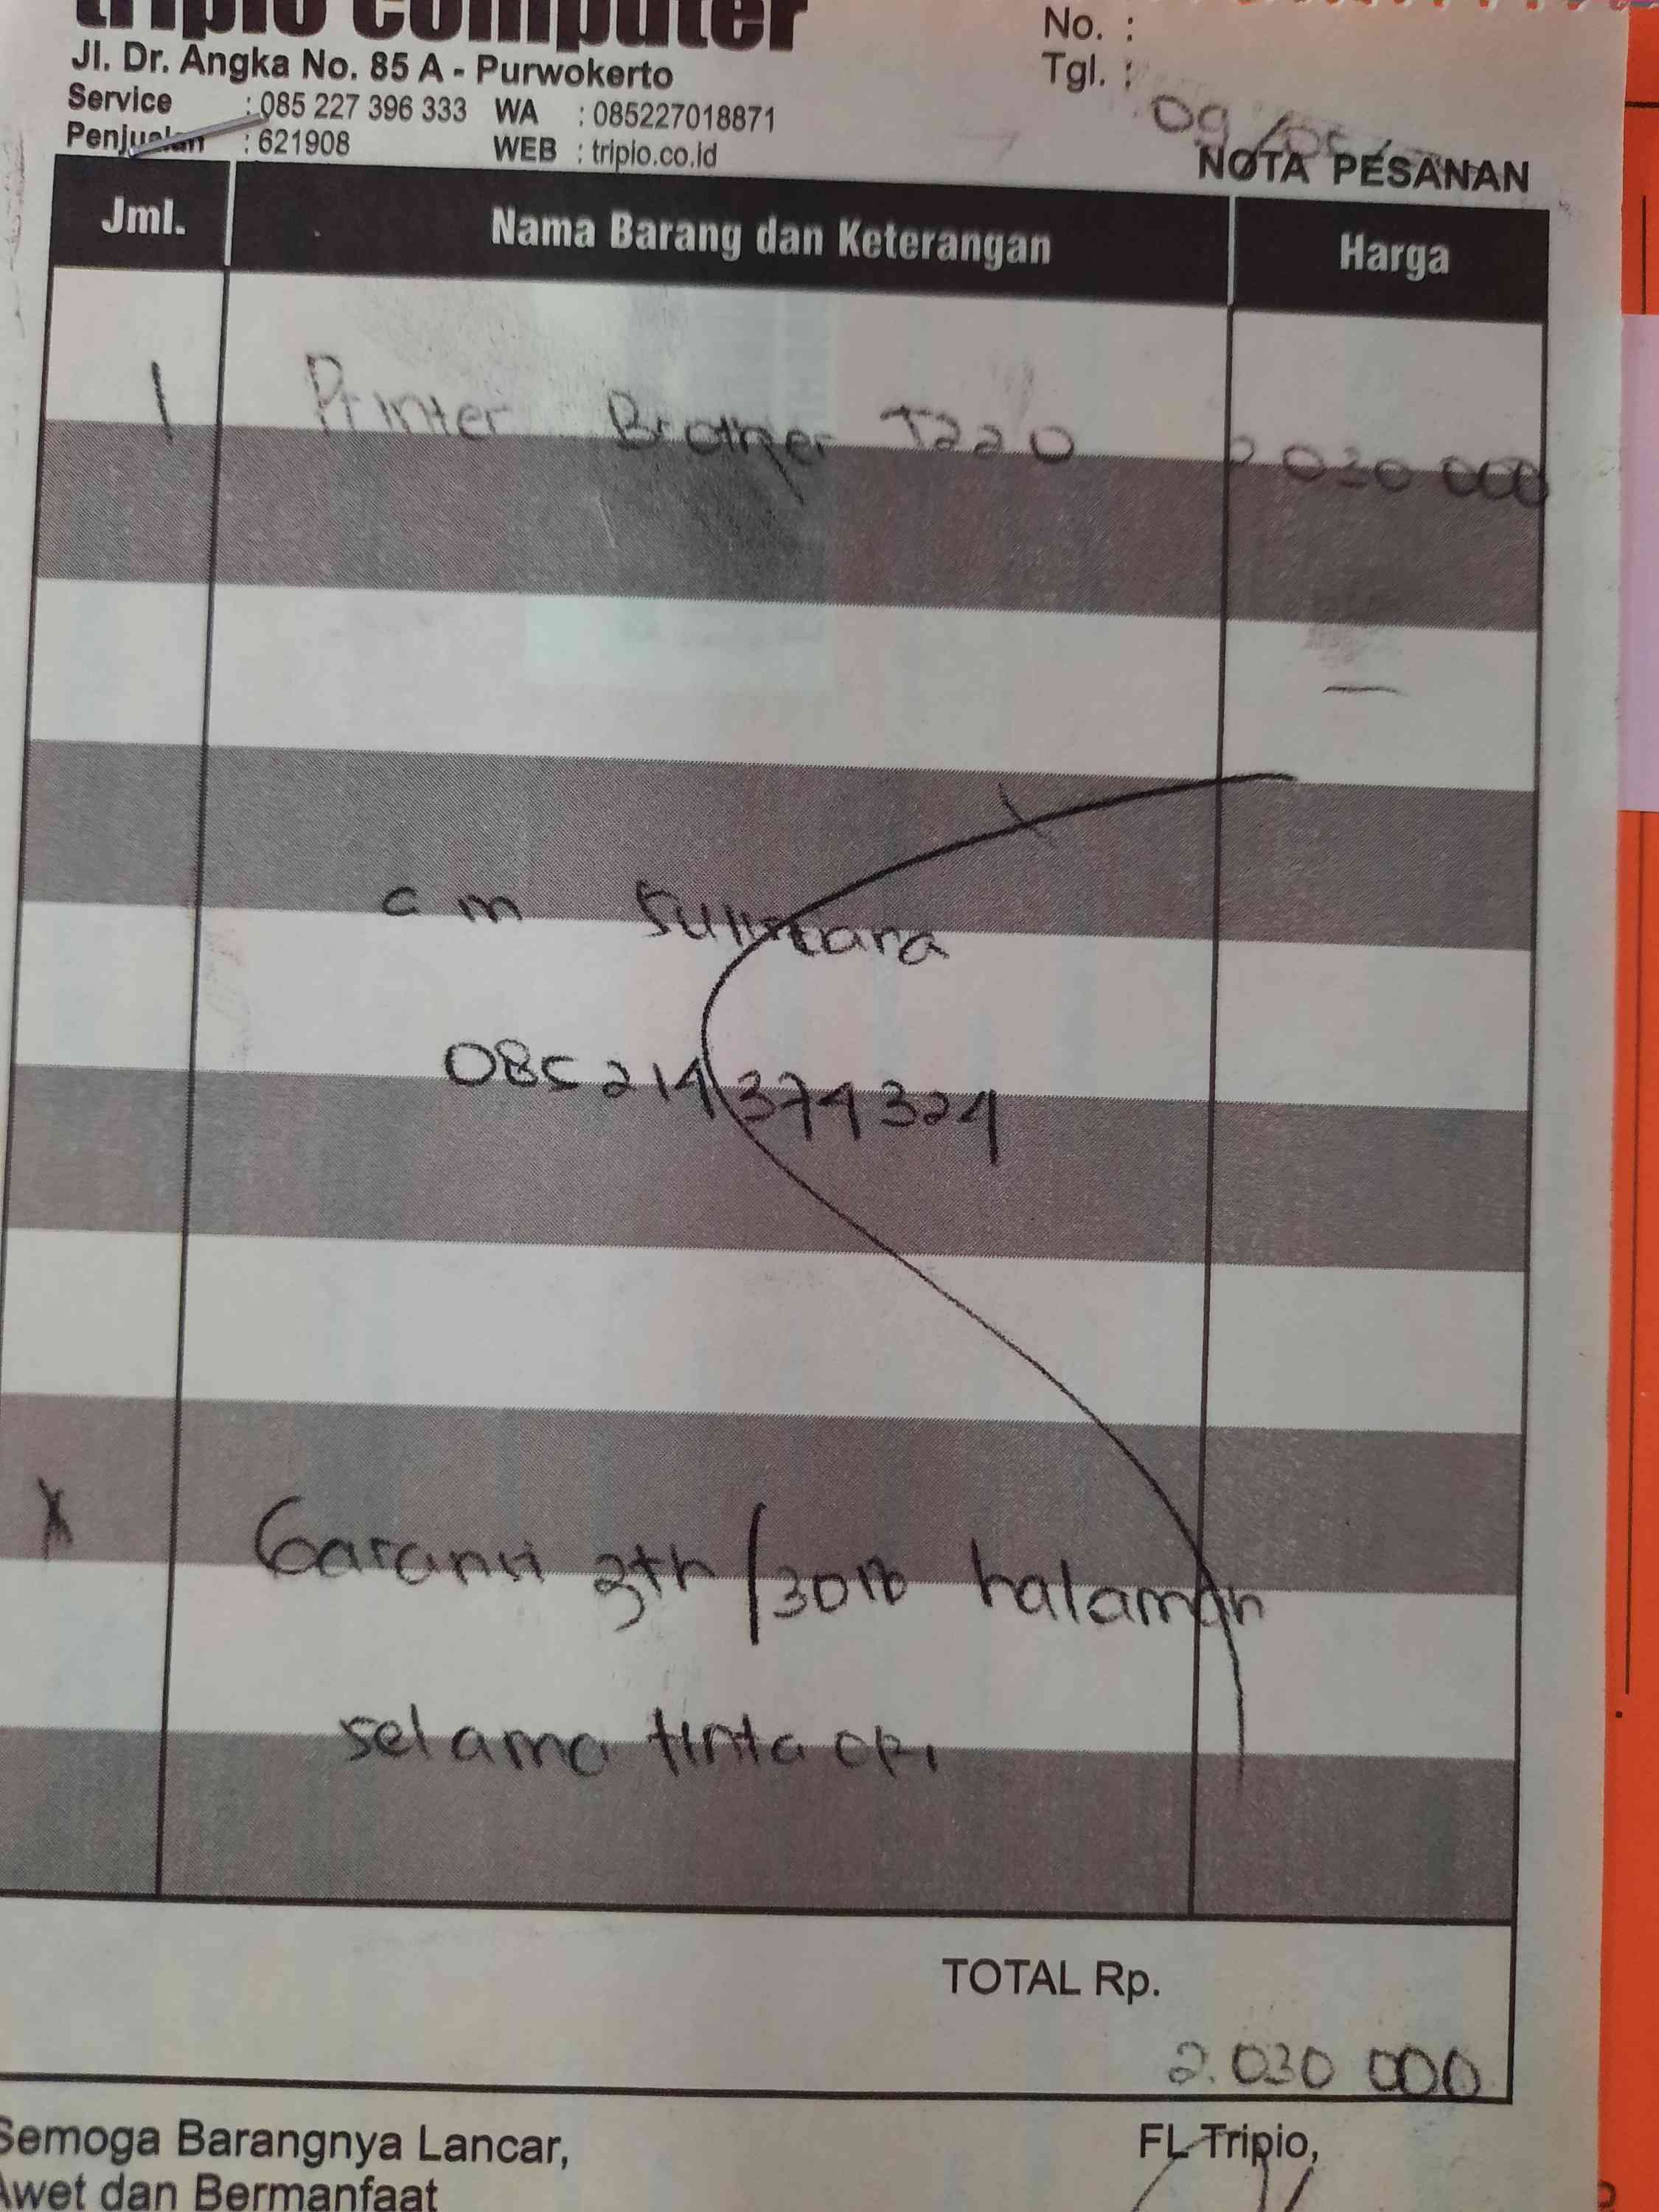 tripio computer
Jl. Dr. Angka No. 85 A - Purwokerto
Service : 085 227 396 333 WA : 085227018871
Penjualan : 621908 WEB : tripio.co.id
No. :
Tgl. :
09/05/
NOTA PESANAN
Jml. Nama Barang dan Keterangan Harga
1 Printer Brother T220 2 030 000
cm
085214374324
Garansi 3th/30rb halaman
selama tinta ori
TOTAL Rp.
2.030 000
Semoga Barangnya Lancar, FL Tripio,
Awet dan Bermanfaat